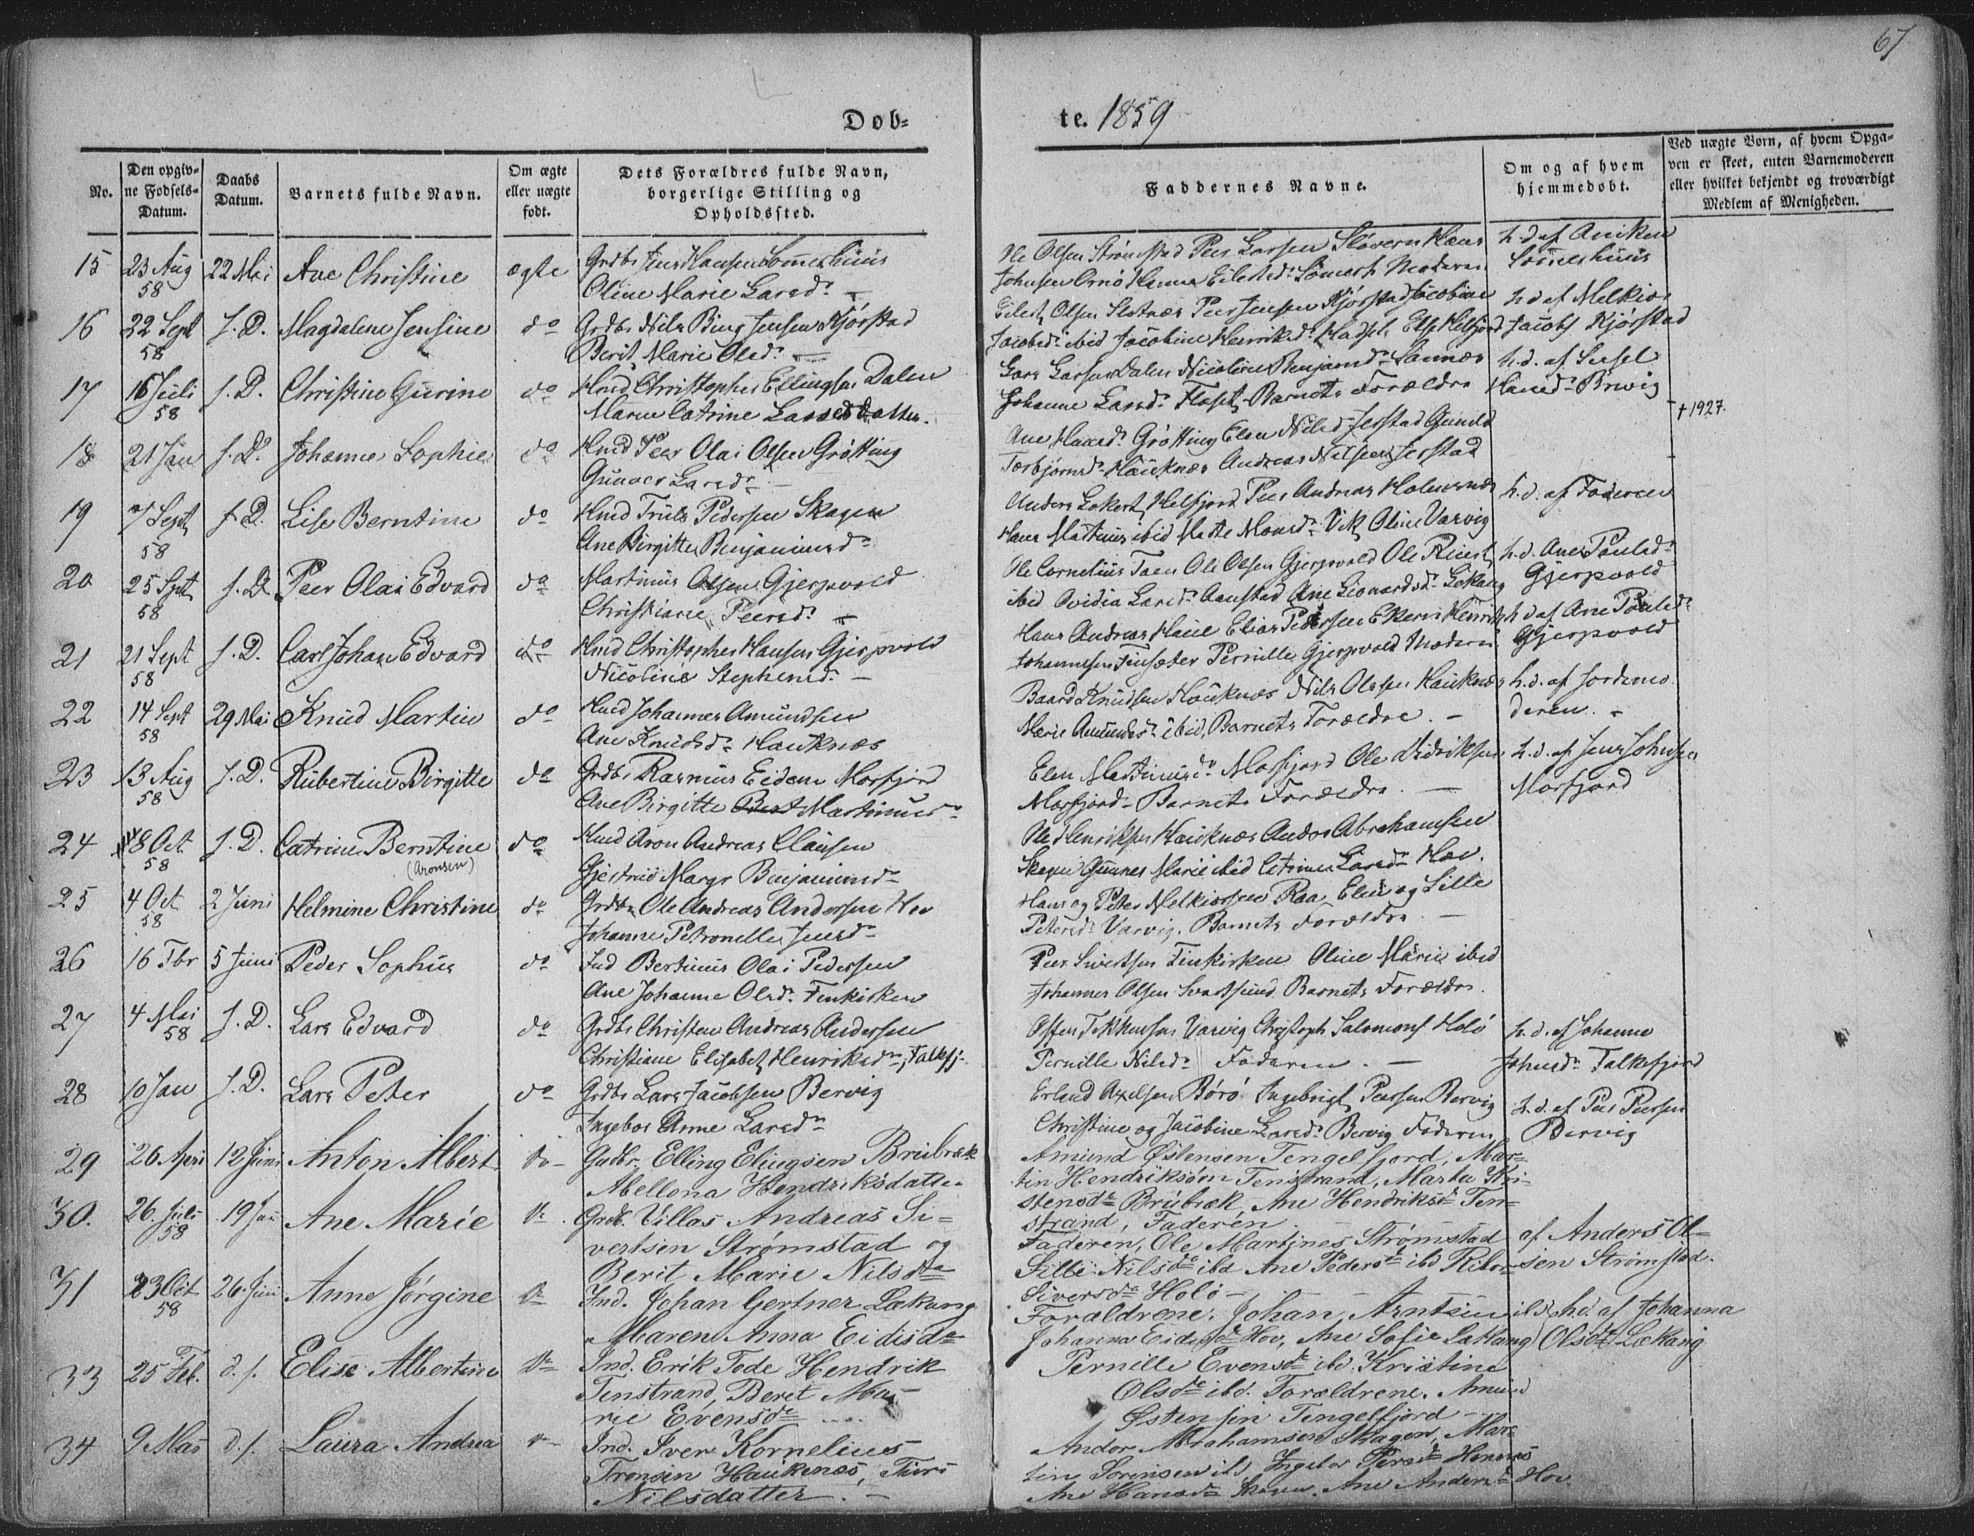 67
Døb-
te. 1859
No.
Den opgiv-
ne Fødsels-
Datum.
Daabs
Datum.
Barnets fulde Navn.
Om ægte
eller uægte
født.
Dets Forældres fulde Navn,
borgerlige Stilling og
Opholdssted.
Faddernes Navne.
Om og af hvem
hjemmedøbt.
Ved uægte Børn, af hvem Opga-
ven er skeet, enten Barnemoderen
eller hvilket bekjendt og troværdigt
Medlem af Menigheden.
15 23 Aug 58 22 Mai Ane Christine ægte Grdbr Jens Hansen
Oline Marie Larsd.
Ole Olsen Strømstad Peer Larsen Hans
Johnsen Moderen
h.d. af Aniken
16 22 Sept 58 s.D. Magdalene Jensine do Grdbr Nils Bing Jensen Kjørstad
Berit Marie Olsd.
Olsen Peer Jensen Kjørstad Jacobine
Jacobsd. ibid Jacobine Henriksd. Hadsel Else Helfjord
h.d. af Melkior
Jacobs Kjørstad
17 16 Juli 58 s.D. Christine Gurine do Hmd Christopher Ellingsen Dalen
Maren Catrine Larsdatter.
Lars Larsen Dalen Nicoline Benjamd. Sannes
Johanne Larsd. Floset Barnets Forældre
h.d. af Sissel
Hansd. Brevig
† 1927.
18 21 Jan s.D. Johanna Sophie do Hmd Peer Olai Olsen Grøtting
Gunner Larsd.
Ane Hansd. Grøtting Elen Nilsd. Jerstad
Torbjørnsd. Hauknæs Andreas Nilsen Jerstad
19 7 Sept 58 s.D. Lise Berntine do Hmd Truls Pedersen Skagen
Ane Birgitte Benjaminsd.
Anders Lokert Helfjord Peer Andreas Holmsnæs
Hans Martinus ibid Mette Monsd. Vik Oline Varvig
h.d. af Faderen
20 25 Sept 58 s.D. Peer Olai Edvard do Martinus Olsen Gjerpvold
Christiane Peersd.
Ole Cornelius Taen Ole Olsen Gjerpvold Ole
ibid Ovidia Larsd. Aanstad Ane Leonardsd. Løkang
h.d. Ane Paulsd.
Gjerpvold
21 21 Sept 58 s.D. Carl Johan Edvard do Hmd Christopher Hansen Gjerpvold
Nicoline Stephensd.
Hans Andreas Elias Pedersen Henrik
Johannesen Finsæter Pernille Gjerpvold Moderen
h.d. af Ane Paulsd.
Gjerpvold
22 14 Sept 58 29 Mai Knud Martin do Hmd Johannes Amundsen
Ane Knudsd. Hauknæs
Baard Knudsen Hauknæs Nils Olsen Hauknæs
Marie Amundsd. ibid, Barnets Forældre.
h.d. af Jordemo
deren.
23 13 Aug 58 s.D. Rubertine Birgitte do Grdbr Rasmus Eidem Morfjord
Ane Birgitte Martinusd.
Elen Martinusd. Morfjord Ole Didriksen
Morfjord. Barnets Forældre
h.d. af Jens Johnsen
Morfjord
24 8 Oct 58 s.D. Catrine Berntine
(Aronsen)
do Hmd Aron Andreas Clausen
Gjertrud Margr. Benjaminsd.
Ole Henriksen Hauknæs Andor Abrahamsen
Skagen Gunner Marie ibid Larsd. Hov.
25 4 Oct 58 2 Juni Helmine Christine do Grdbr Ole Andreas Andersen Hov
Johanne Petronelle Jensd.
Hans og Peter Melkiorsen Raa, Elen og Sille
Petersd. Varvig. Barnets Forældre.
26 16 Fbr 5 Juni Peder Sophus do Ind Bertinus Olai Pedersen
Ane Johanne Olsd. Finkirken
Peer Sivertsen Finkirken Oline Marie ibid
Johannes Olsen Svartsund. Barnets Forældre.
27 4 Mai 58 s.D. Lars Edvard do Grdbr Christen Andreas Andersen
Christiane Elisabet Henriksd., Falkfj.
Varvig Christoph Salomons Holø
Pernille Nilsd. Faderen.
h.d. af Johanne
Johnsd. Falkefjord
28 10 Jan s.D. Lars Peter do Grdbr Lars Jacobsen Bervig
Ingebor Anne Larsd.
Erland Axelsen Børø. Ingebrigt Peersen Bervig
Christine og Jacobine Larsd. Bervig Faderen
h.d. af Peer Peersen
Bervig
29 26 Apri 12 Juni Anton Albert do Gadbr. Elling Elingsen Brubræk
Abellona Hendriksdatter
Amund Østensen Tengelfjord, Mar-
tin Hendriksøn Tenstrand, Marta Kri-
stensdr Brubræk, Ane Hendriksdr Ten-
strand, Faderen.
30. 26. Juli 58 19 Jun Ane Marie do Grdb. Villas Andreas Si-
vertsen Strømstad og
Berit Marie Nilsdr
Faderen, Ole Martines Strømstad
Sille Nilsdr ibd Ane Pedersdr ibd
Siversdr Holø
af Anders Ol-
sen Strømstad.
31 23 Oct 58 26. Juni Anne Jørgine do Ind. Johan Gertner Lækang
Maren Anna Eidisdr
Forældrene. Johan Arntsen ibd
Johanna Eidesdr Hov, Ane Sofie Lækang
hd. af Johanna
Olsdr Lækang
33 25 Feb. d.s. Elise Albertine do Ind. Erik Tode Hendrik
Tenstrand, Beret Ma-
rie Evensdr
Pernille Evensdr ibd. Kristine
Olsdr ibd. Forældrene. Amund
Østensen Tengelfjord
34 9 Mai d.s. Laura Andrea do Ind. Iver Kornelius
Tronsen Haukenæs,
Nilsdatter.
Andor Abrahamsen Skagen, Mar-
tin Sørensen ibd Ingebor Persdr Hennes
Ane Hansdr Skagen. Ane Andersdr Hov.